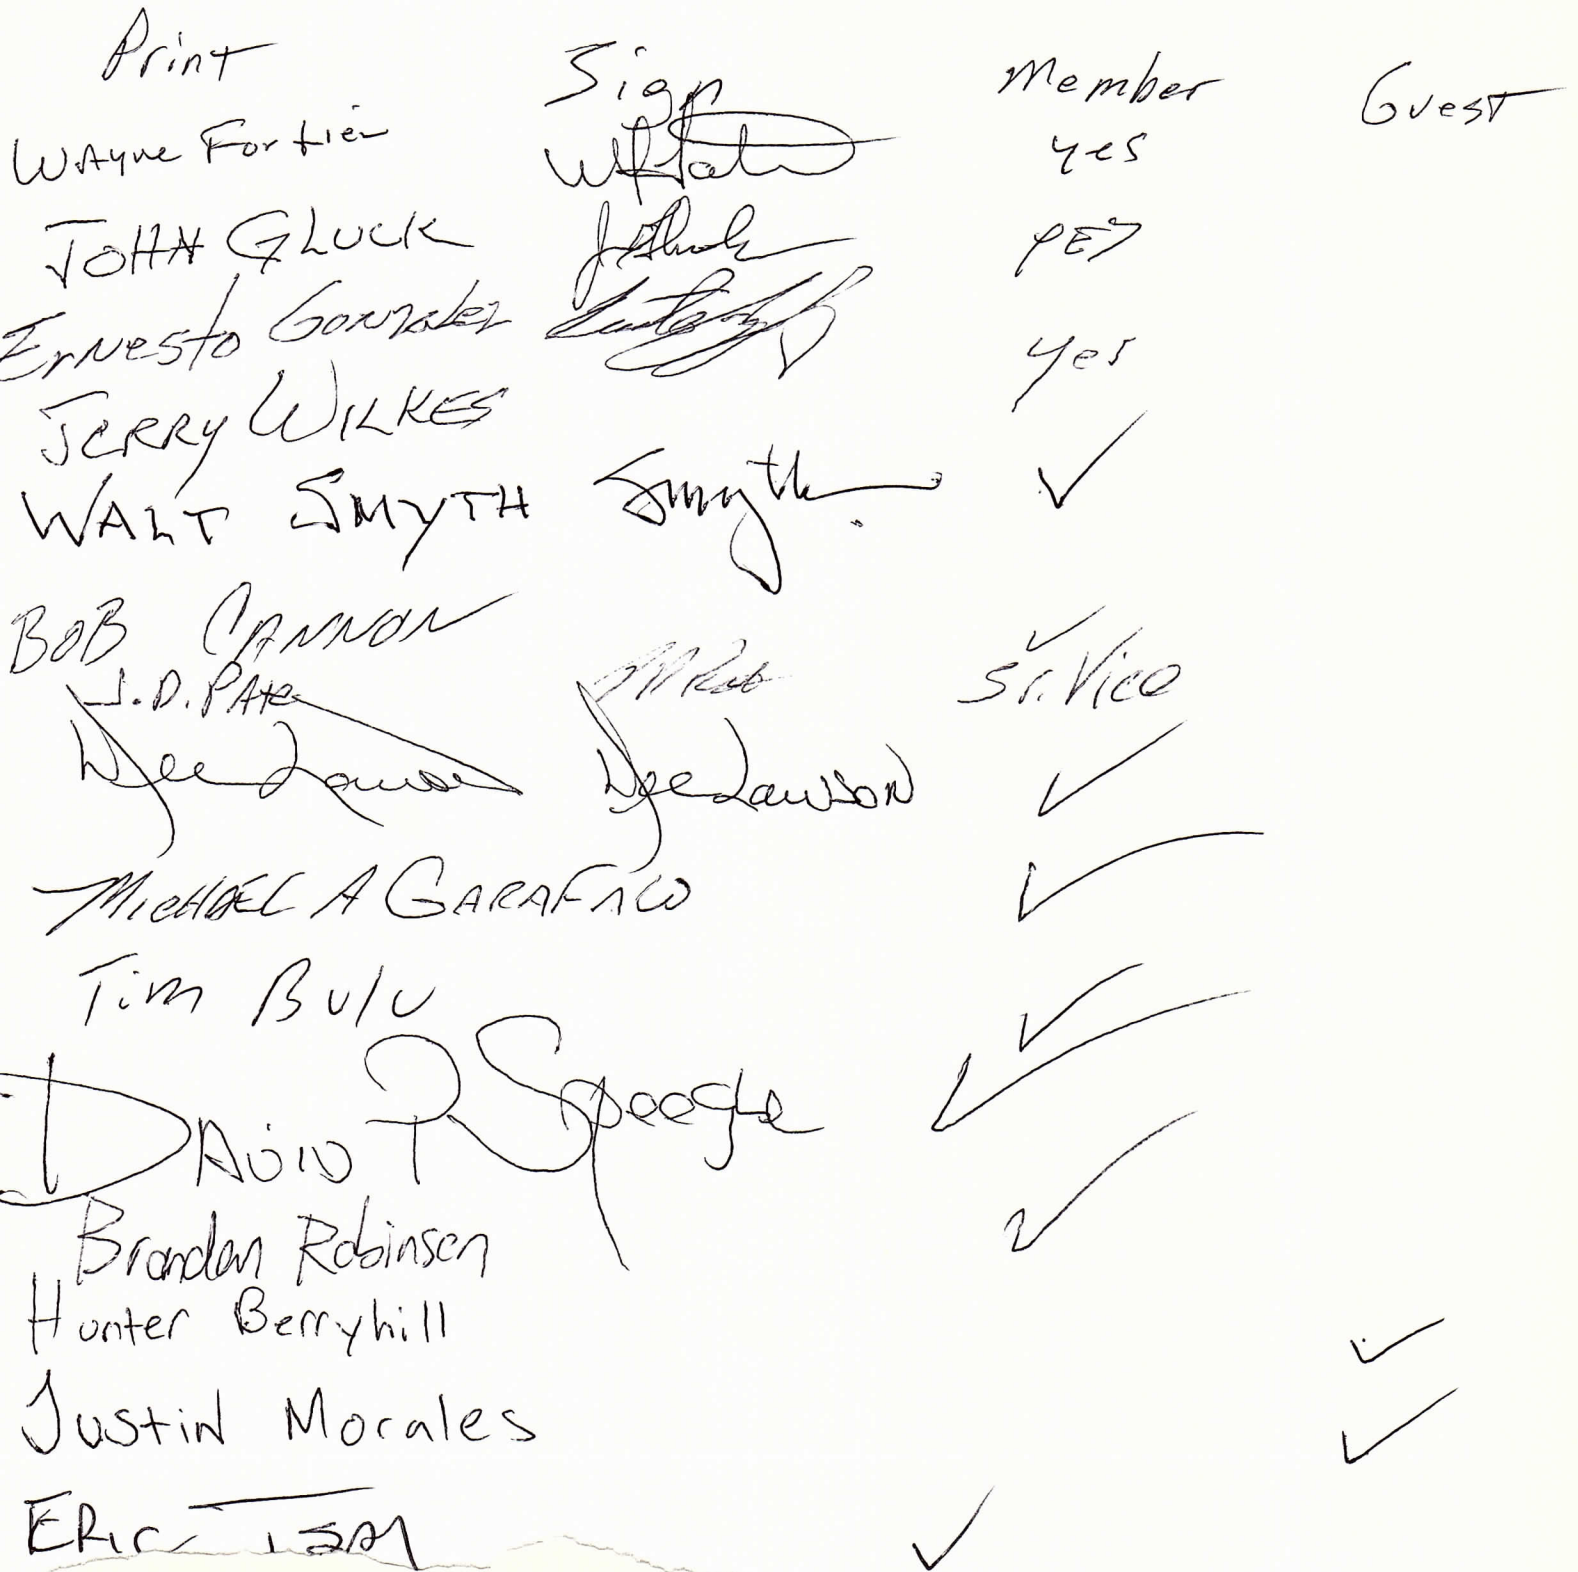 Print Sign Member Guest
WAYNE Fortier yes
JOHN GLUCK YES
ErNesto Gonzalez yes
JERRY WILKES
WALT SMYTH Smyth ✓
BOB CANNON ✓
J.D. Sr. Vice
Dee Lawson Dee Lawson ✓
MICHAEL A ✓
Tim Bulu ✓
DAVID P Speegle ✓
Brandon Robinson ✓
Hunter Berryhill ✓
Justin Morales ✓
ERIC ✓